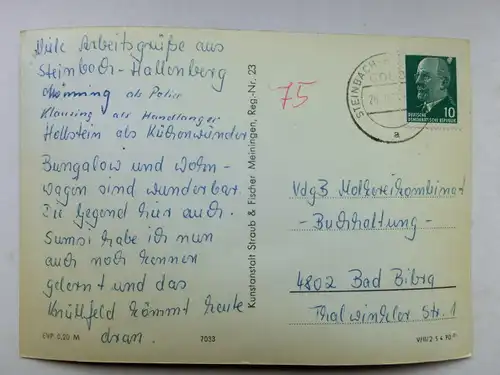 Viele Arbeitsgrüße aus
Steinbach-Hallenberg
Mönning als Polier
Klansing als Handlanger
Hollstein als Küchenwunder
Bungalow und Wohn-
wagen sind wunderbar.
Die Gegend hier auch.
Sumsi habe ich nun
auch noch kennen
gelernt und das
Knüllfeld kommt heute
dran.
EVP 0,20 M
7033
Kunstanstalt Straub & Fischer Meiningen, Reg.-Nr. 23
75
STEINBACH-
a
10
DEUTSCHE
DEMOKRATISCHE REPUBLIK
VdgB Molkereikombinat
- Buchhaltung -
4802 Bad Bibra
Thalwinkler Str. 1
V/8/2 S 4 70